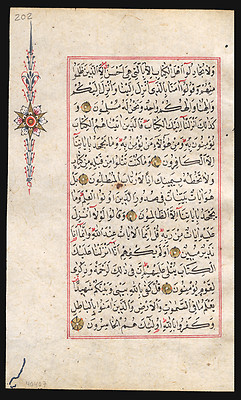 202
وَلَا تُجَادِلُوا اَهْلَ الْكِتَابِ اِلَّا بِالَّتِي هِيَ اَحْسَنُ اِلَّا الَّذِينَ ظَلَمُوا
مِنْهُمْ وَقُولُوا اٰمَنَّا بِالَّذِي اُنْزِلَ اِلَيْنَا وَاُنْزِلَ اِلَيْكُمْ
وَاِلٰهُنَا وَاِلٰهُكُمْ وَاحِدٌ وَنَحْنُ لَهُ مُسْلِمُونَ
وَكَذٰلِكَ اَنْزَلْنَا اِلَيْكَ الْكِتَابَ فَالَّذِينَ اٰتَيْنَاهُمُ الْكِتَابَ
يُؤْمِنُونَ بِهِ وَمِنْ هٰؤُلَاءِ مَنْ يُؤْمِنُ بِهِ وَمَا يَجْحَدُ بِاٰيَاتِنَا
اِلَّا الْكَافِرُونَ وَمَا كُنْتَ تَتْلُوا مِنْ قَبْلِهِ مِنْ كِتَابٍ
وَلَا تَخُطُّهُ بِيَمِينِكَ اِذًا لَارْتَابَ الْمُبْطِلُونَ بَلْ
هُوَ اٰيَاتٌ بَيِّنَاتٌ فِي صُدُورِ الَّذِينَ اُوتُوا الْعِلْمَ وَمَا
يَجْحَدُ بِاٰيَاتِنَا اِلَّا الظَّالِمُونَ وَقَالُوا لَوْلَا اُنْزِلَ
عَلَيْهِ اٰيَاتٌ مِنْ رَبِّهِ قُلْ اِنَّمَا الْاٰيَاتُ عِنْدَ اللّٰهِ وَاِنَّمَا اَنَا
نَذِيرٌ مُبِينٌ اَوَلَمْ يَكْفِهِمْ اَنَّا اَنْزَلْنَا عَلَيْكَ
الْكِتَابَ يُتْلٰى عَلَيْهِمْ اِنَّ فِي ذٰلِكَ لَرَحْمَةً وَذِكْرٰى
لِقَوْمٍ يُؤْمِنُونَ قُلْ كَفٰى بِاللّٰهِ بَيْنِي وَبَيْنَكُمْ شَهِيدًا
يَعْلَمُ مَا فِي السَّمٰوَاتِ وَالْاَرْضِ وَالَّذِينَ اٰمَنُوا بِالْبَاطِلِ
وَكَفَرُوا بِاللّٰهِ اُولٰئِكَ هُمُ الْخَاسِرُونَ